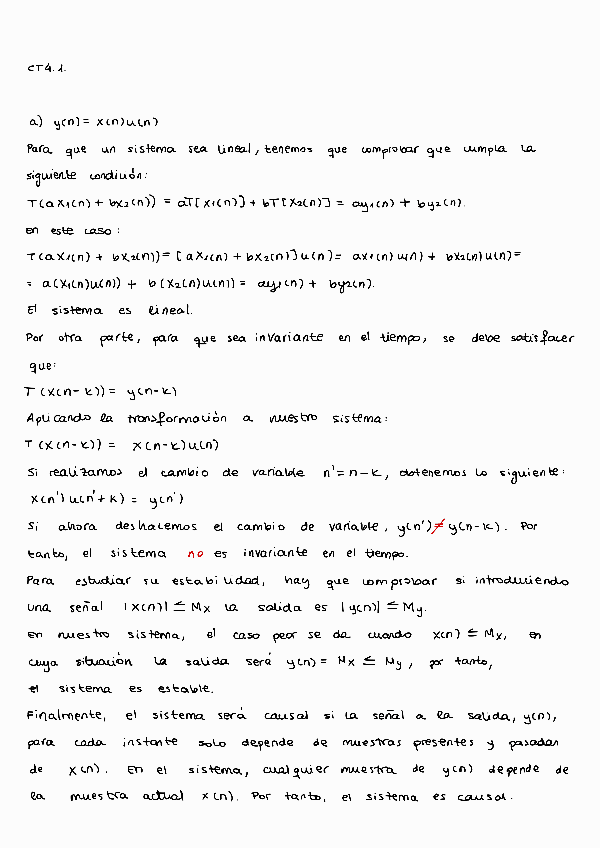 CT4.1.
a) y(n) = x(n)u(n)
Para que un sistema sea lineal, tenemos que comprobar que cumpla la
siguiente condición:
T(ax₁(n) + bx₂(n)) = aT[x₁(n)] + bT[x₂(n)] = ay₁(n) + by₂(n).
En este caso:
T(ax₁(n) + bx₂(n)) = [ax₁(n) + bx₂(n)]u(n) = ax₁(n)u(n) + bx₂(n)u(n) =
= a(x₁(n)u(n)) + b(x₂(n)u(n)) = ay₁(n) + by₂(n).
El sistema es lineal.
Por otra parte, para que sea invariante en el tiempo, se debe satisfacer
que:
T(x(n-k)) = y(n-k)
Aplicando la transformación a nuestro sistema:
T(x(n-k)) = x(n-k)u(n)
Si realizamos el cambio de variable n' = n-k, obtenemos lo siguiente:
x(n')u(n'+k) = y(n')
Si ahora deshacemos el cambio de variable, y(n') ≠ y(n-k). Por
tanto, el sistema no es invariante en el tiempo.
Para estudiar su estabilidad, hay que comprobar si introduciendo
una señal |x(n)| ≤ Mx la salida es |y(n)| ≤ My.
En nuestro sistema, el caso peor se da cuando x(n) ≤ Mx, en
cuya situación la salida será y(n) = Mx ≤ My, por tanto,
el sistema es estable.
Finalmente, el sistema será causal si la señal a la salida, y(n),
para cada instante solo depende de muestras presentes y pasadas
de x(n). En el sistema, cualquier muestra de y(n) depende de
la muestra actual x(n). Por tanto, el sistema es causal.